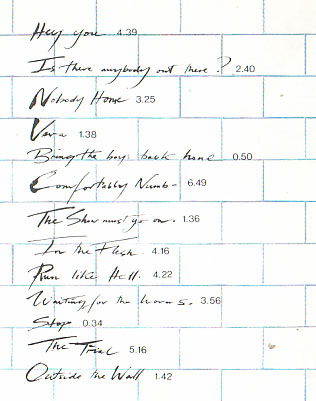 Hey you 4.39
Is there anybody out there? 2.40
Nobody Home 3.25
Vera 1.38
Bring the boys back home 0.50
Comfortably Numb - 6.49
The Show must go on. 1.36
In the Flesh 4.16
Run like Hell. 4.22
Waiting for the worms. 3.56
Stop 0.34
The Trial 5.16
Outside the Wall 1.42